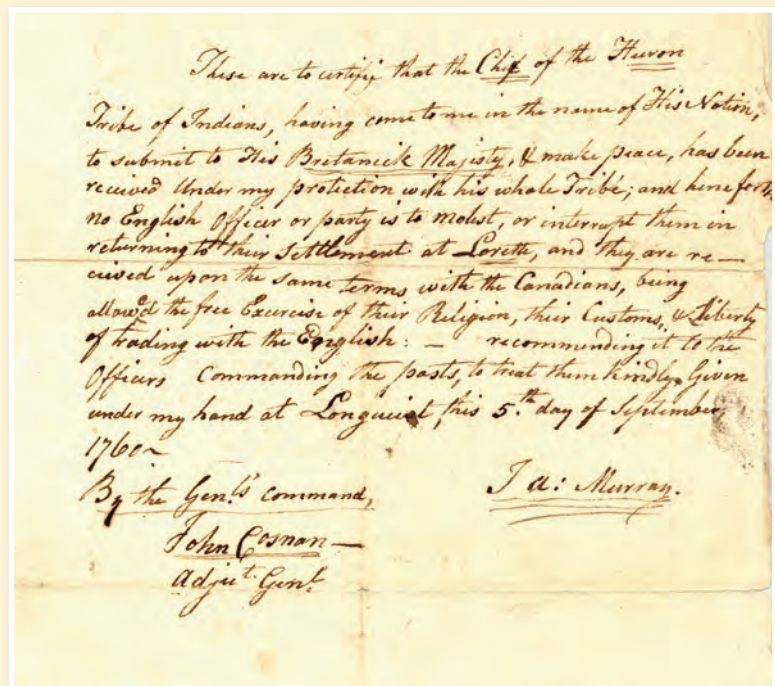 These are to certify that the Chif of the Huron
Tribe of Indians, having come to me in the name of His Nation,
to submit to His Bretanick Majisty, & make peace, has been
received Under my protiction with his whole Tribé; and hencforth
no English Officer or party is to molest, or interrupt them in
returning to their Settlement at Lorette, and they are re—
ceived upon the same terms with the Canadians, being
allowed the free Exercise of their Religion, their Customs, & Liberty
of trading with the English: — recommending it to the
Officers Commanding the posts, to treat them kindly. Given
under my hand at Longueist, this 5.th day of September,
1760~
By the Genl's Command,
Ja: Murray.
John Cosnan —
Adjut. Genl.